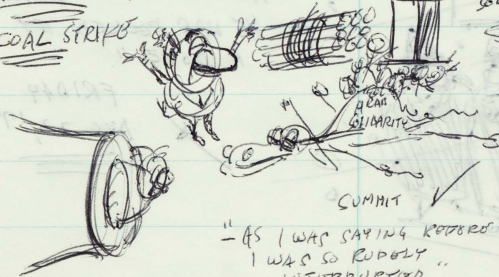 COAL STRIKE
ARAB
SOLIDARITY
SUMMIT
"– AS I WAS SAYING BEFORE
I WAS SO RUDELY
INTERRUPTED..